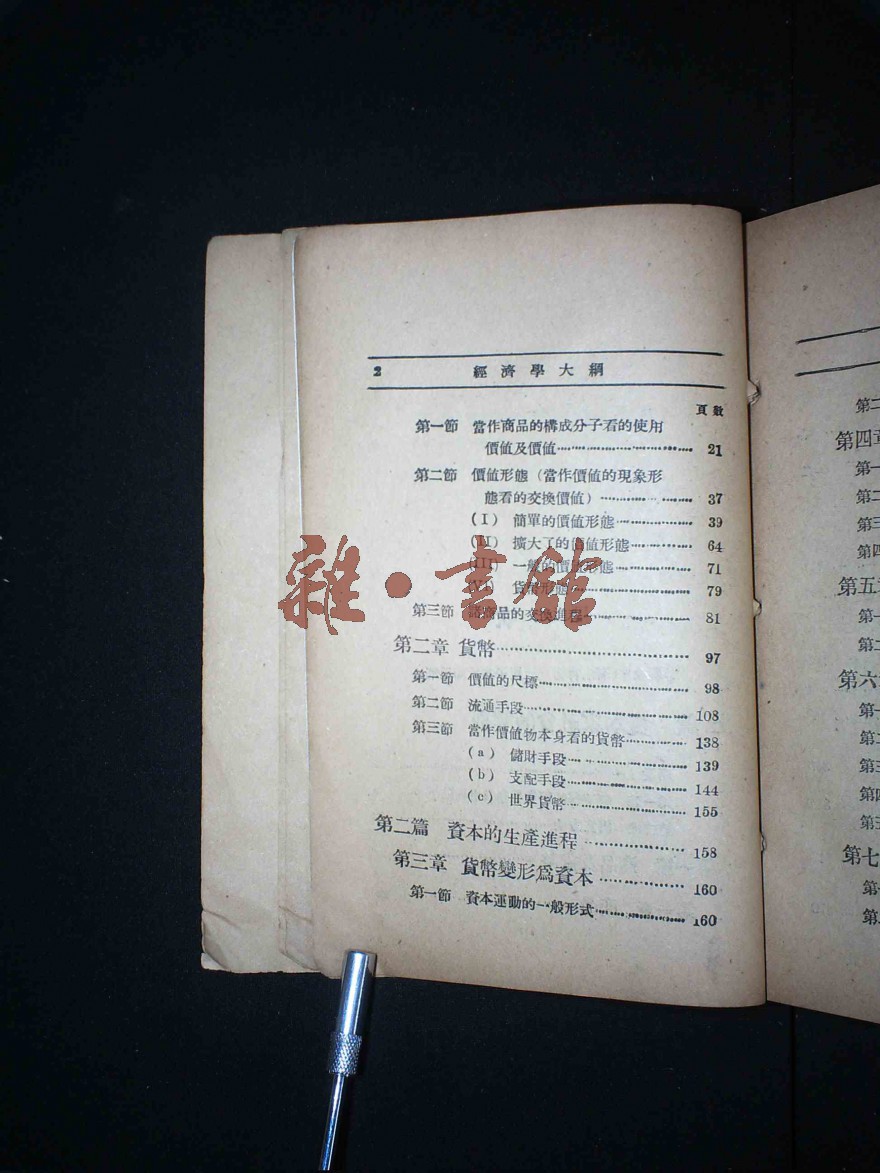 2 經濟學大綱
頁數
第一節 當作商品的構成分子看的使用
價値及價値 21
第二節 價値形態(當作價値的現象形
態看的交換價値) 37
(I) 簡單的價値形態 39
(II) 擴大了的價値形態 64
(III) 一般的價値形態 71
(VI) 貨幣形態 79
第三節 諸商品的交換進程 81
第二章 貨幣 97
第一節 價値的尺標 98
第二節 流通手段 108
第三節 當作價値物本身看的貨幣 138
(a) 儲財手段 139
(b) 支配手段 144
(c) 世界貨幣 155
第二篇 資本的生產進程 158
第三章 貨幣變形爲資本 160
第一節 資本運動的一般形式 160
雜·書館
第二
第四章
第一
第二
第三
第四
第五章
第一
第二
第六章
第一
第二
第三
第四
第五
第七
第一
第